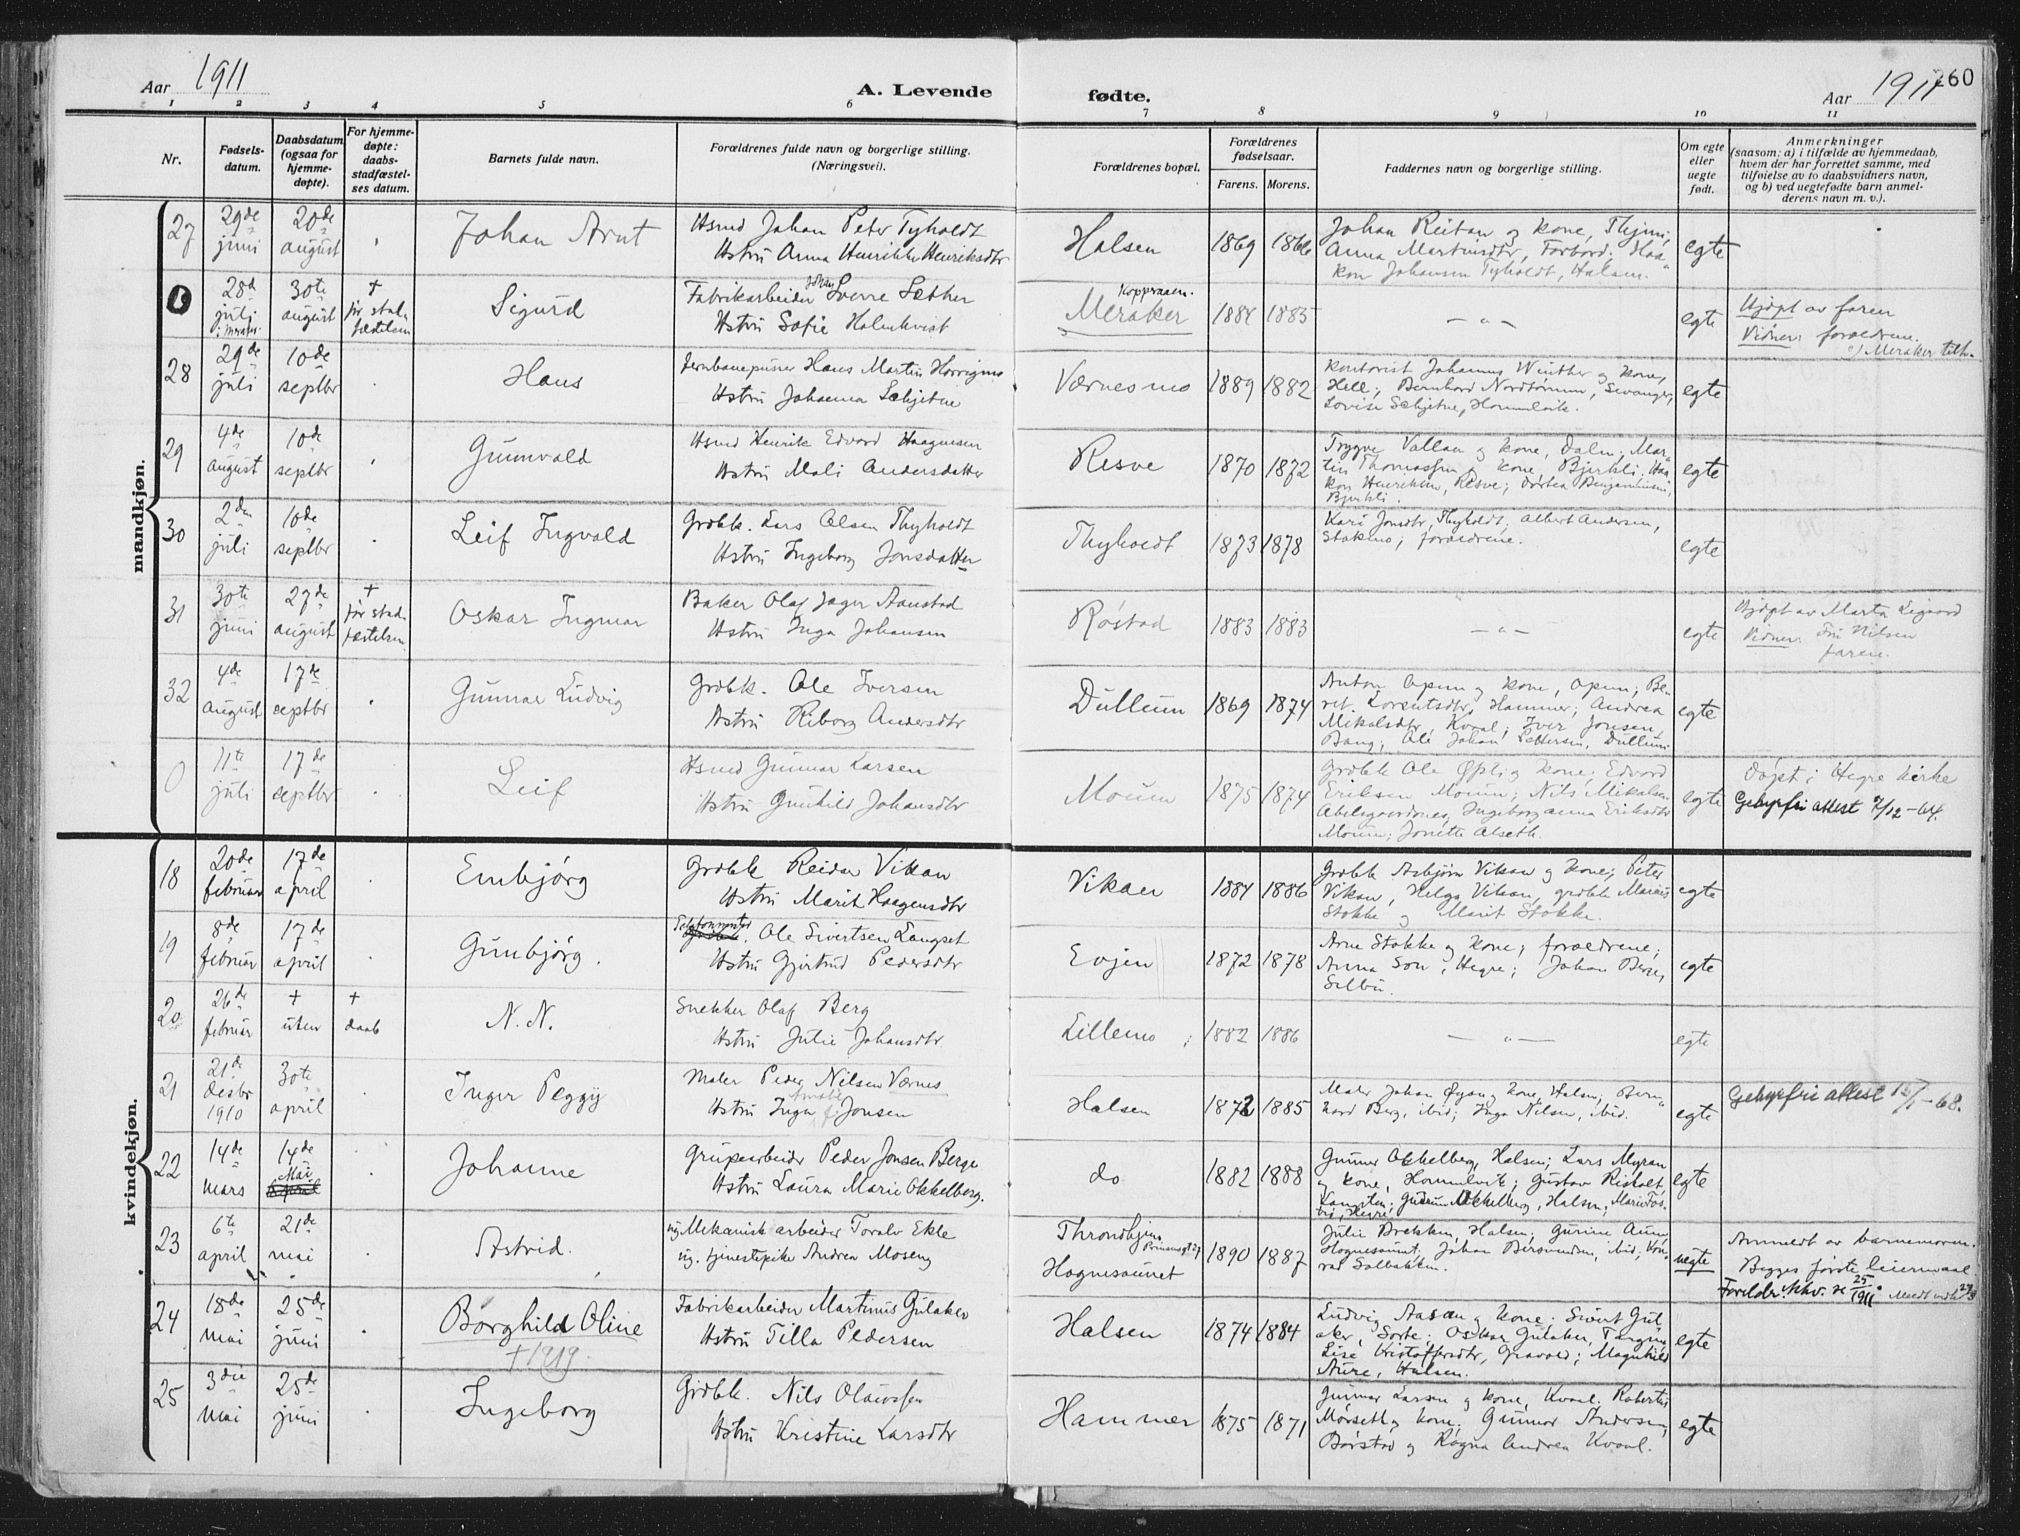 Aar 1911
A. Levende
fødte.
Aar 1911
260
1 2 3 4 5 6 7 8 9 10 11
Nr.
Fødsels-
datum.
Daabsdatum
(ogsaa for
hjemme-
døpte).
For hjemme-
døpte:
daabs-
stadfæstel-
ses datum.
Barnets fulde navn.
Forældrenes fulde navn og borgerlige stilling.
(Næringsvei).
Forældrenes bopæl.
Forældrenes
fødselsaar.
Farens. Morens.
Faddernes navn og borgerlige stilling.
Om egte
eller
uegte
født.
Anmerkninger
(saasom: a) i tilfælde av hjemmedaab,
hvem der har forrettet samme, med
tilføielse av to daabsvidners navn,
og b) ved uegtefødte barn anmel-
derens navn m. v.).
mandkjøn.
27
29de
juni
20de
august
Johan Arnt
Gsmd Johan Peter Tyholdt
Hstru Anna Henrikke Henriksdtr
Halsen
1869 1866
Johan Reitan og kone,
Anna Martinsdtr, Forbord; Haa-
kon Johansen Tyholdt, Halsen.
egte
0
28d
juli
i Meraker
30te
august
+
før stad-
fæstelsen
Sigurd
Fabrikarbeider Johan Sverre Sæther
Hstru Sofie Holmkvist
Kopperaaen.
Meraker
1884 1883
— „ —
egte
Hjdpt av faren
Vidner: forældrene.
Meraker tilh.
28
29de
juli
10de
septbr
Hans
Jernbanepusser Hans Martin
Hstru Johanna Schjetne
Værnesmo
1889 1882
Kontorist Johannes Winther og kone,
Hell; Bernhard Nordtømme, Levanger,
Lovise Schjetne, Hommelvik.
egte
29
4de
august
10de
septbr
Gunnvald
Gsmd Henrik Edvard Haagensen
Hstru Mali Andersdatter
Resve
1870 1872
Trygve Vallan og kone, Dalen; Mar-
tin Thomassen og kone, Bjerkli; Haa-
kon Henriksen, Resve; Dortea Benjaminsen,
Bjerkli.
egte
30
2den
juli
10de
septbr
Leif Ingvald
Grdbk. Lars Olsen Thyholdt
Hstru Ingeborg Jonsdatter
Thyholdt
1873 1878
Kari Jonsdtr, Thyholdt; Albert Andersen,
Stokmo; forældrene.
egte
31
30te
juni
27de
august
+
før stad-
fæstelsen
Oskar Ingmar
Baker Olaf Jager Aanstad
Hstru Inga Johansen
Røstad
1883 1883
— „ —
egte
Hjdpt av Marta Ligaard
Vidner: Fru Nilsen
faren.
32
4de
august
17de
septbr
Gunnar Ludvig
Grdbk. Ole Iversen
Hstru Riborg Andersdtr
Dullum
1869 1874
Anton Opem og kone, Opem; Be-
ret Lorentsdtr, Hammer; Andrea
Mikalsdtr, Kvaal; Iver Jonsen
Bang; Ole Johan Pettersen, Dullum
egte
0
11te
juli
17de
septbr
Leif
Gsmd Gunnar Larsen
Hstru Gunhild Johansdtr
Moum
1875 1874
Grdbk Ole Øpli og kone; Edvard
Eriksen Moum; Nils Mikalsen
Ingeborganna Eriksdtr
Moum; Jonette Alseth.
egte
Døpt i Hegre kirke
Gebyrfri attest 9/12-64.
kvindekjøn.
18
20de
februar
17de
april
Embjørg
Grdbk Reidar Vikan
Hstru Marit Haagensdtr
Vikan
1884 1886
Grdbk Asbjørn Vikan og kone; Peter
Vikan, Helga Vikan, grdbk Marius
Stokke og Marit Stokke.
egte
19
8de
februar
17de
april
Gunbjørg.
Ole Sivertsen Langset
Hstru Gjertrud Pedersdtr
Evjen
1872 1878
Arne Stokke og kone; forældrene;
Anna Son, Hegre; Johan Berge,
Selbu.
egte
20
26de
februar
+
uten
+
daab
N. N.
Snekker Olaf Berg
Hstru Julie Johansdtr
Lillemo
1882 1886
— „ —
egte
21
21de
desbr
1910
30te
april
Inger Peggy
Maler Peder Nilsen Værnes
Hstru Inga Jonsen
Halsen
1872 1885
Maler Johan Øyan og kone, Halsen; Bern-
hard Berg, ibid; Inga Nilsen, ibid.
egte
Gebyrfri attest 15/1-68.
22
14de
mars
14de
Mai
Johanne
Grubearbeider Peder Jonsen Berge
Hstru Laura Marie Okkelberg.
do
1882 1888
Gunner Okkelberg, Halsen; Lars Myran
og kone, Hommelvik; Gustav Risholt,
Langsten; Gudrun Okkelberg, Halsen;
Hegre
egte
23
6te
april
21de
mai
Astrid.
ug. Mekanisk arbeider Toralv Ekle
ug. tjenestepike Andrea Moseng
Throndhjem
Prinsensgt 27
Hognesaunet
1890 1887
Julie Brekken, Halsen; Gurine Aune,
Hognesaunet; Johan Bersvendsen, ibid;
Solbakken.
uegte
Anmeldt av barnemoren.
Begges første leiermaal
25
1911
24
18de
mai
25de
juni
Borghild Oline
+ 1919.
Fabrikarbeider Martinus Gulaker
Hstru Tilla Pedersen
Halsen
1874 1884
Ludvig Aasan og kone; Sivert Gul-
aker, Sorte; Oskar Gulaker, Tangen;
Lise Kristoffersdtr, Gravold; Magnhild
Aune, Halsen.
egte
25
3die
mai
25de
juni
Ingeborg
Grdbk. Nils Olaussen
Hstru Kristine Larsdtr
Hammer
1875 1871
Gunnar Larsen og kone, Kvaal; Robertus
Mørseth og kone; Gunnar Andersen,
Børstad og Ragna Andrea Kvaal.
egte